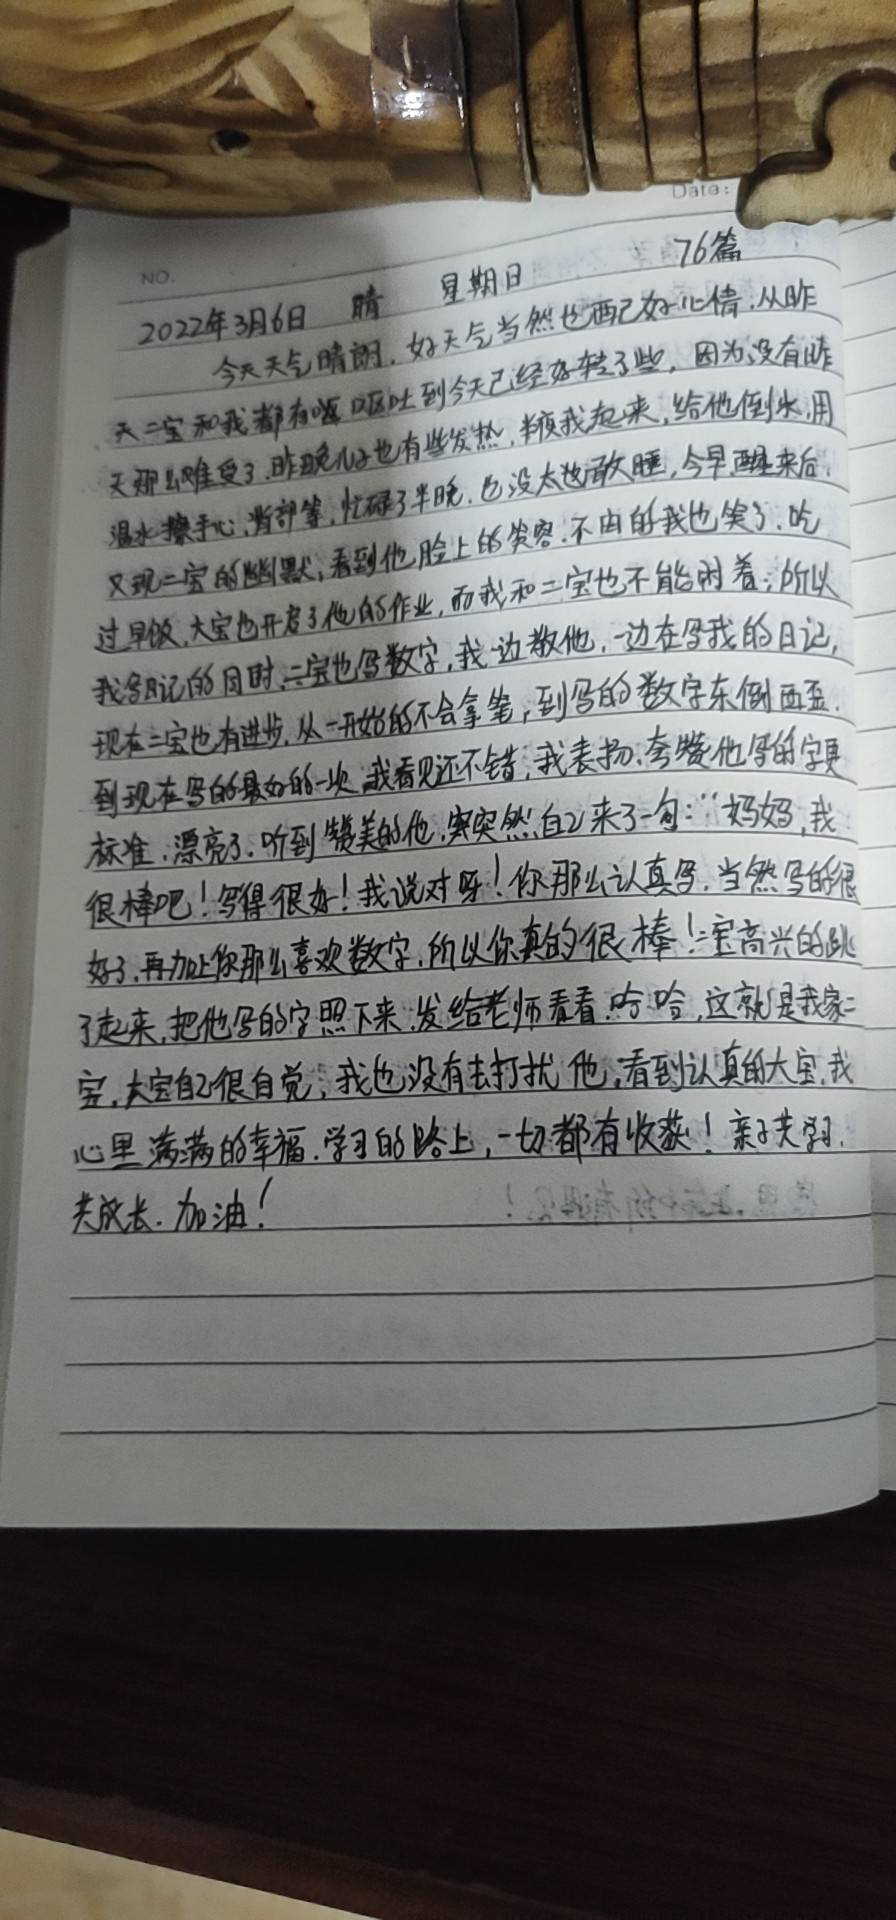 Date:
NO.
76篇
2022年3月6日 晴 星期日
今天天气晴朗.好天气当然也配好心情.从昨
天二宝和我都有呕吐到今天已经好转了些,因为没有昨
天那么难受了.昨晚儿子也有些发热,半夜我起来,给他倒水,用
温水擦手心,背部等,忙碌了半晚.也没太敢睡,今早醒来后,
又现二宝的幽默,看到他脸上的笑容.不由的我也笑了.吃
过早饭,大宝也开启了他的作业,而我和二宝也不能闲着;所以
我写日记的同时,二宝也写数字,我一边教他,一边在写我的日记,
现在二宝也有进步,从一开始的不会拿笔,到写的数字东倒西歪.
到现在写的最好的一次,我看见还不错,我表扬.夸赞他写的字更
标准.漂亮了.听到赞美的他,突然自己来了一句:“妈妈,我
很棒吧!写得很好!我说对呀!你那么认真写.当然写的很
好了.再加上你那么喜欢数字,所以你真的很棒!二宝高兴的跳
了起来,把他写的字照下来.发给老师看看.哈哈,这就是我家二
宝,大宝自己很自觉;我也没有去打扰他,看到认真的大宝,我
心里满满的幸福.学习的路上,一切都有收获!亲子共学习.
共成长.加油!